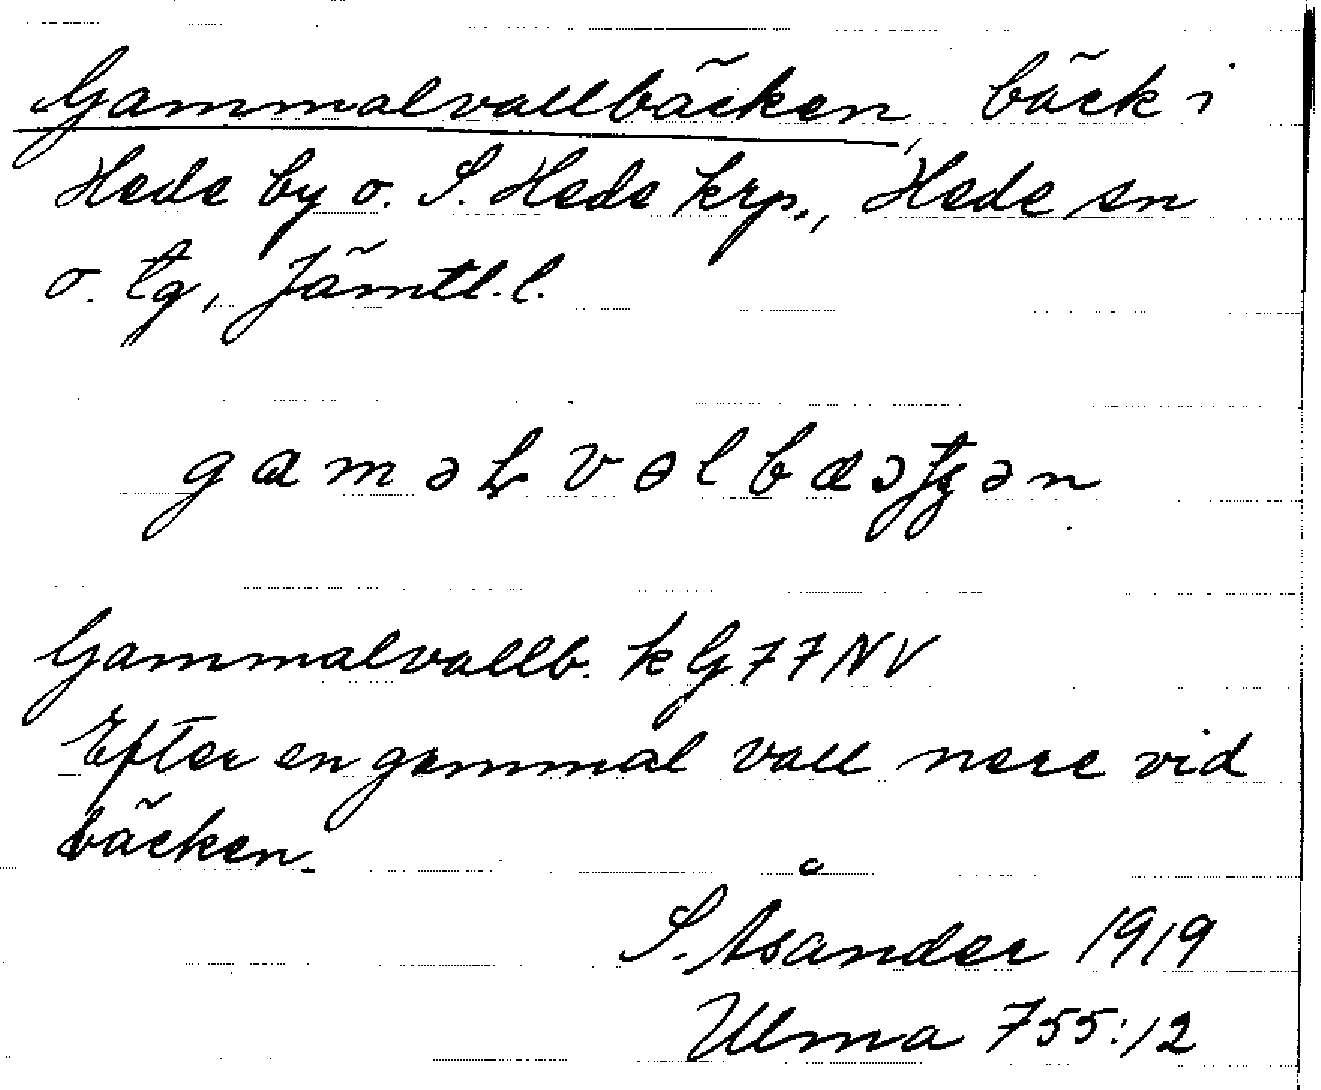 Gammalvallbäcken, bäck i
Hede by o. S. Hede krp., Hede sn
o. tg, Jämtl. l.
Gammalvallb. k G 77 NV
Efter en gammal vall nere vid
bäcken.
S. Åsander 1919
Ulma 755:12